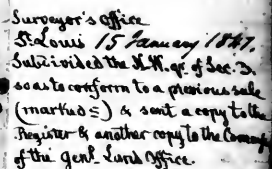 Surveyor's Office
St. Louis 15 January 1847.
Subdivided the N.W. qr. of Sec. 3,
so as to conform to a previous sale
(marked S) & sent a copy to the
Register & another copy to the
of the Genl. Land Office.